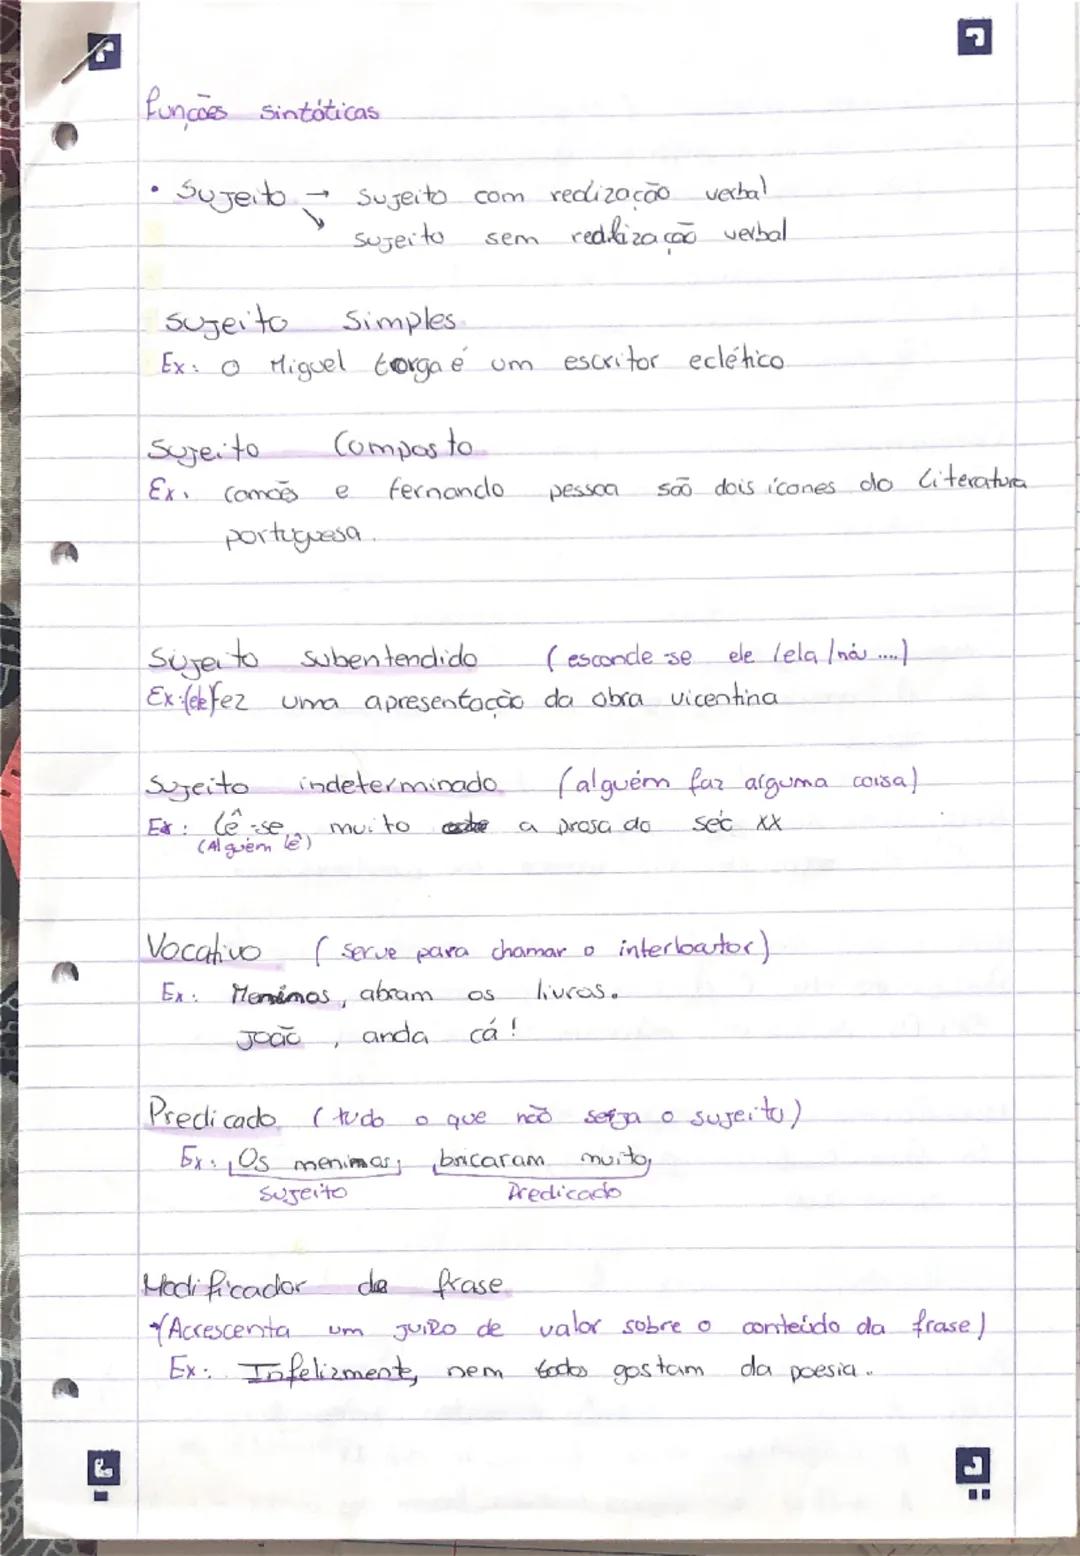 Funções sintáticas
• Sujeito → Sujeito com realização verbal
↘ sujeito sem realização verbal
Sujeito Simples
Ex: O Miguel torga é um escritor eclético
Sujeito Composto
Ex: Camões e fernando pessoa são dois ícones da Literatura
portuguesa.
Sujeito subentendido (esconde-se ele /ela /nós ....)
Ex:(ele)fez uma apresentação da obra vicentina
Sujeito indeterminado (alguém faz alguma coisa)
Ex: Lê-se muito a prosa do séc XX
(Alguém lê)
Vocativo (serve para chamar o interlocutor)
Ex: Meninos, abram os livros.
João , anda cá !
Predicado (tudo o que não seja o sujeito)
Ex: Os meninos, bricaram muito
Sujeito Predicado
Modificador da frase
(Acrescenta um juizo de valor sobre o conteúdo da frase)
Ex: Infelizmente, nem todos gostam da poesia.